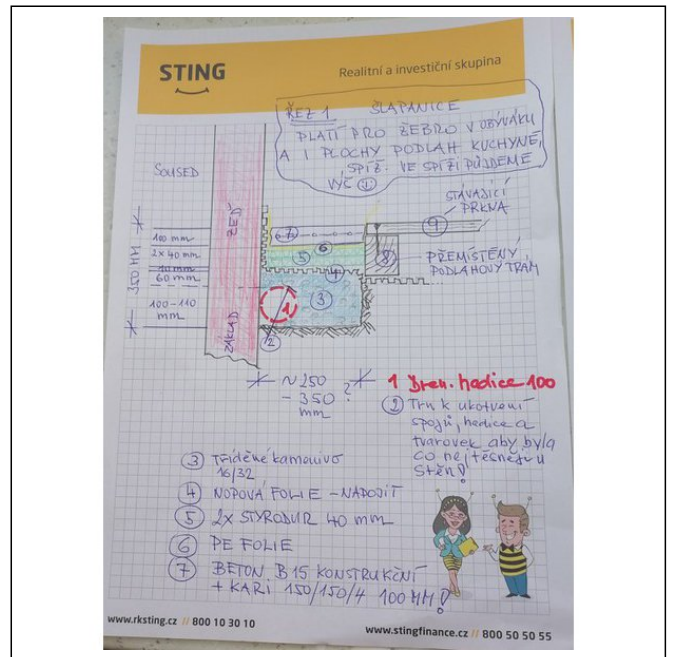 STING
Realitní a investiční skupina
ŘEZ 1. ŠLAPANICE
PLATÍ PRO ŽEBRO V OBÝVÁKU
A I PLOCHY PODLAH KUCHYNĚ,
SPÍŽ. VE SPÍŽI PŮJDEME
VÝŠ
SOUSED
ZEĎ
ZÁKLAD
350 MM
100 mm
2x40 mm
10 mm
60 mm
100-110
mm
7
6
5
4
3
1
2
8
9
STÁVAJÍCÍ
PRKNA
PŘEMÍSTĚNÝ
PODLAHOVÝ TRÁM
~250
- 350 ?
mm
1 Dren. hadice 100
2 Trn k ukotvení
spojů, hadice a
tvarovek aby byla
co nejtěsněji u
Stěn!
3 Tříděné kamenivo
16/32
4 NOPOVÁ FOLIE - NAPOJIT
5 2x STYRODUR 40 mm
6 PE FOLIE
7 BETON B15 KONSTRUKČNÍ
+ KARI 150/150/4 100 MM!
www.rksting.cz // 800 10 30 10
www.stingfinance.cz // 800 50 50 55